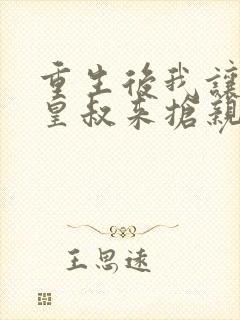 重生後我讓
皇叔来搶親
王思遠